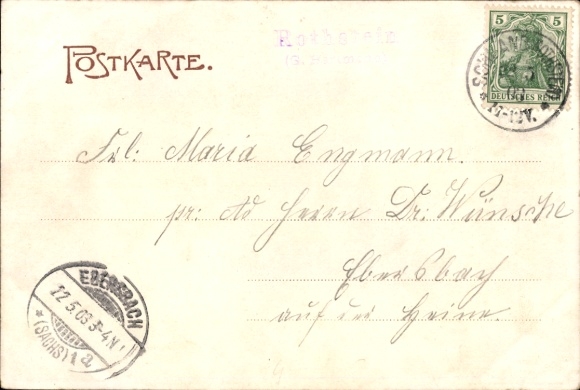 POSTKARTE.
Rothstein
5 5
DEUTSCHES REICH
11-12V.
Frl: Maria Engmann.
pr: Ad Herrn Dr: Wünsche
Ebersbach
auf der Heine.
EBERSBACH
22.5.03 3-4N.
*(SACHS) 1 a